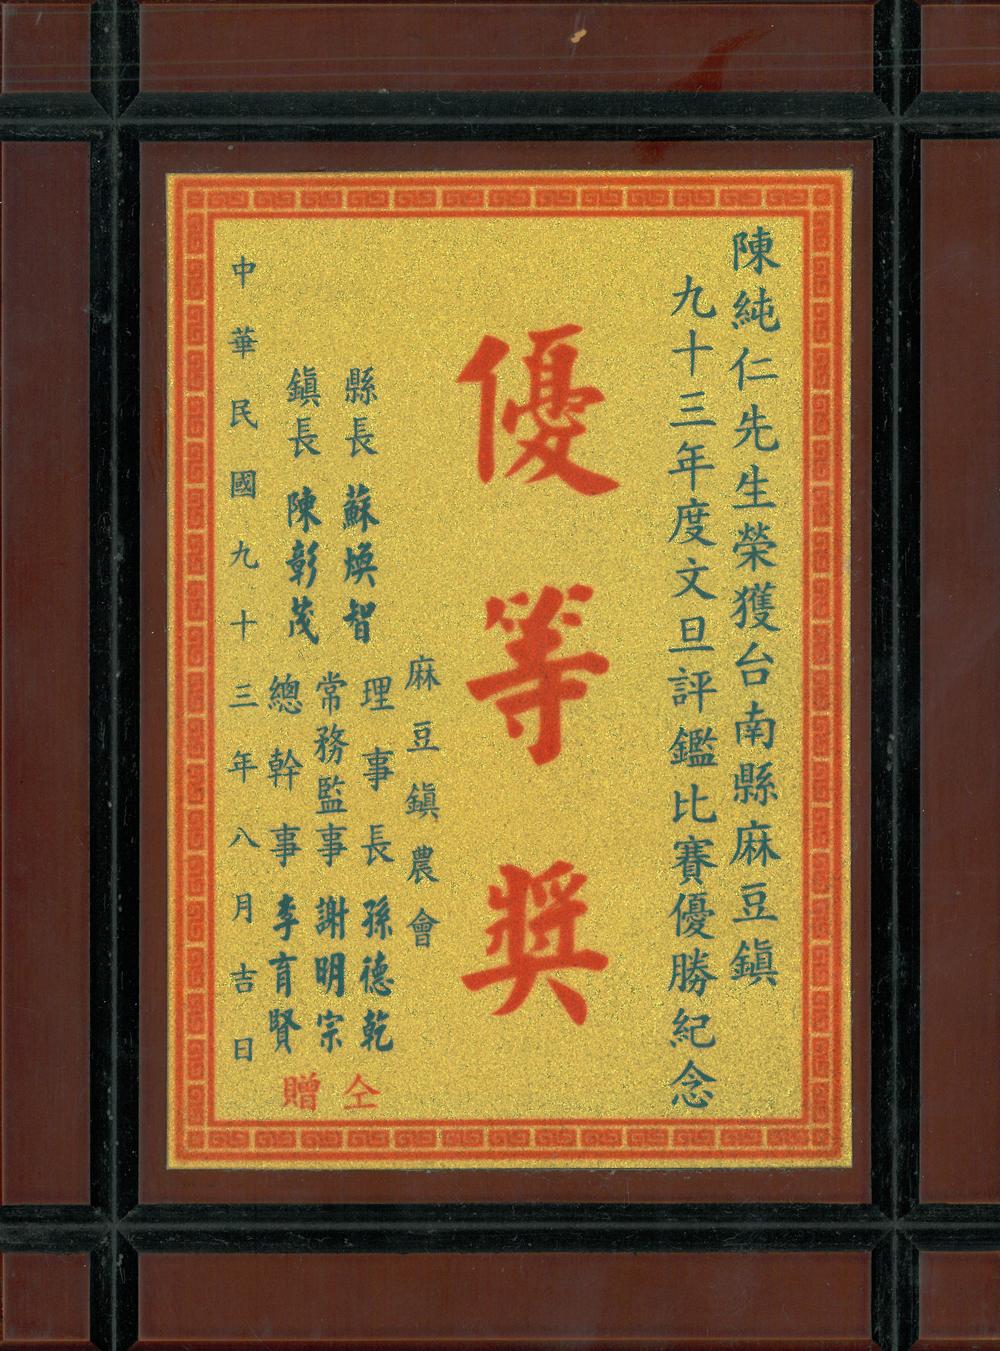 陳純仁先生榮獲台南縣麻豆鎮
九十三年度文旦評鑑比賽優勝紀念
優等獎
縣長 蘇煥智
鎮長 陳彰茂
麻豆鎮農會
理事長 孫德乾
常務監事 謝明宗
總幹事 李育賢
仝贈
中華民國九十三年八月吉日